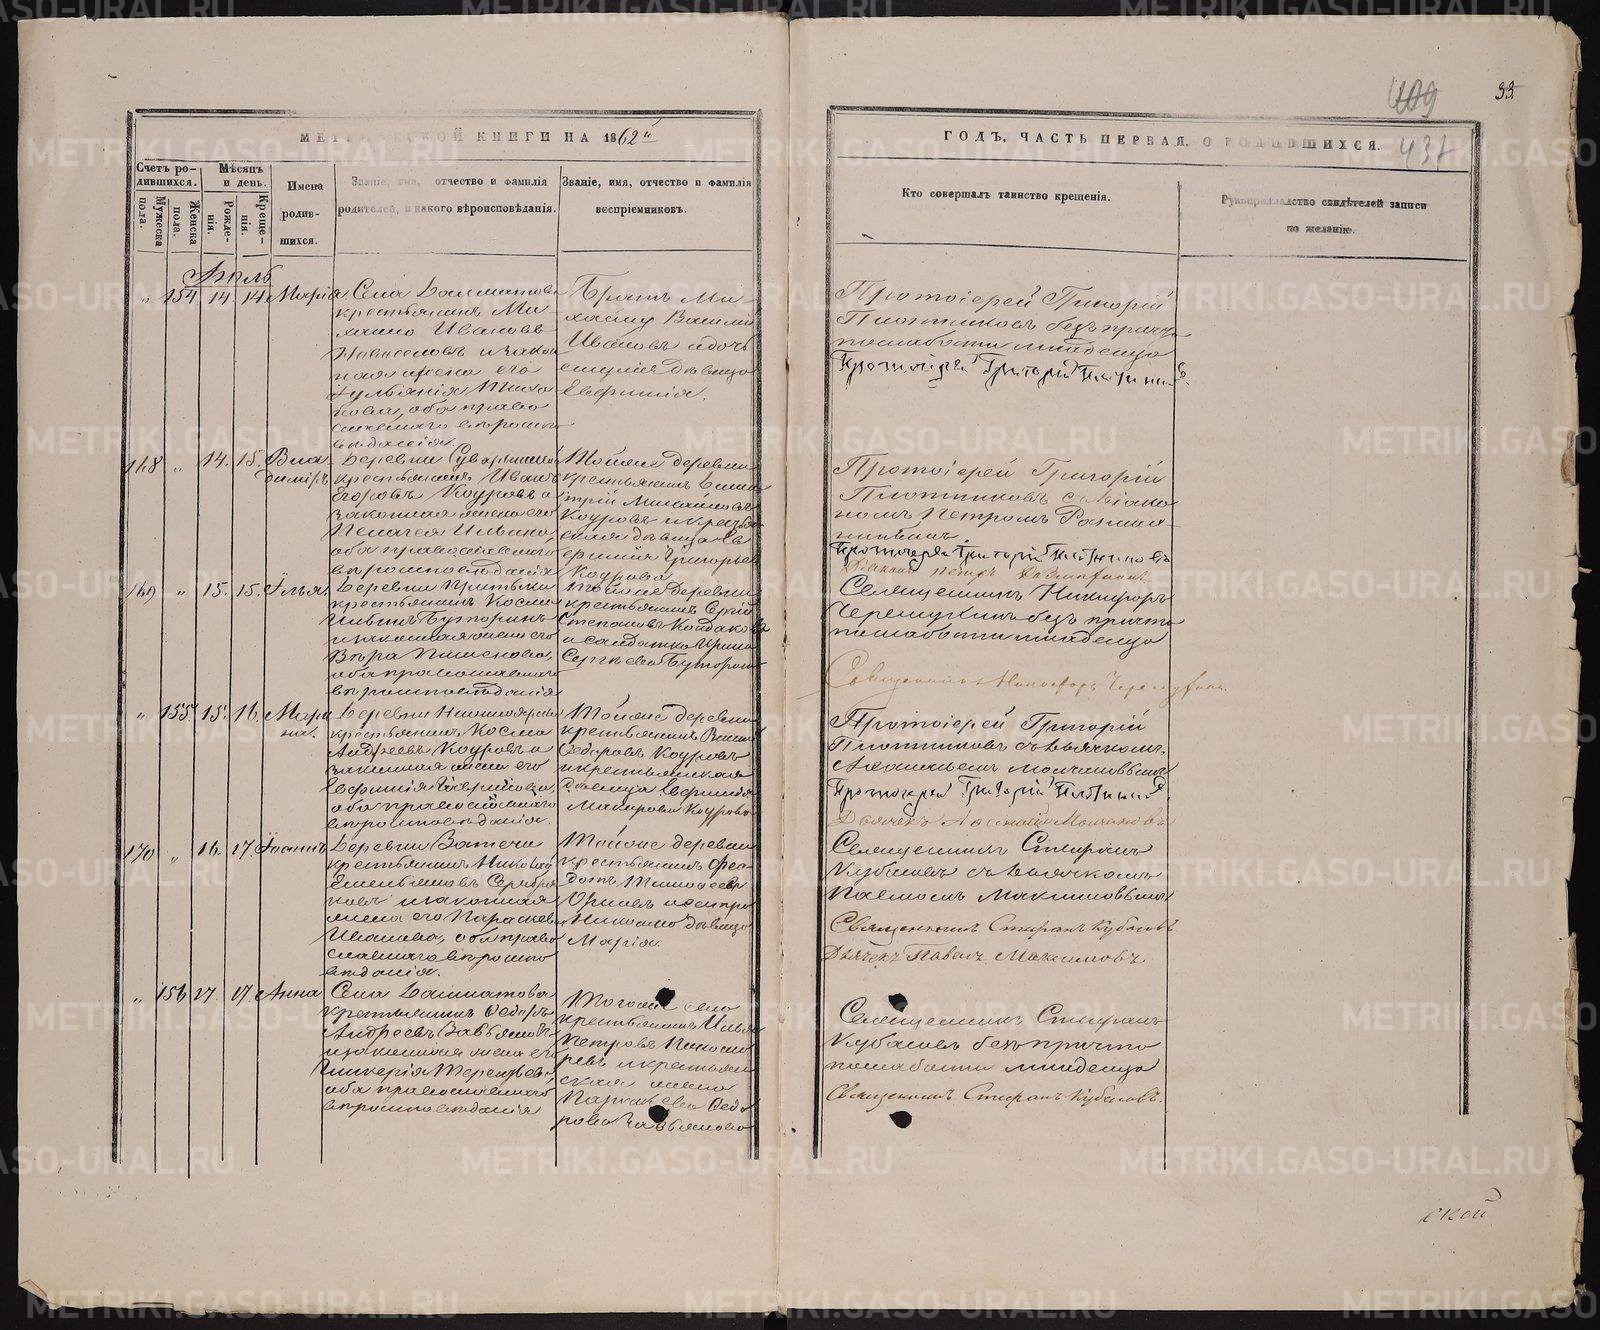 409 33
437
МЕТРИЧЕСКОЙ КНИГИ НА 1862й
ГОДЪ, ЧАСТЬ ПЕРВАЯ, О РОДИВШИХСЯ.
Счетъ ро-
дившихся.
Мужеска
пола.
Женска
пола.
Мѣсяцъ
и день.
Рожде-
нія.
Креще-
нія.
Имена
родив-
шихся.
Званіе, имя, отчество и фамилія
родителей, и какого вѣроисповѣданія.
Званіе, имя, отчество и фамилія
воспріемниковъ.
Кто совершалъ таинство крещенія.
Рукоприкладство свидѣтелей записи
по желанію.
Апрѣль
„ 154 14 14 Марія
Села Далматова
крестьянинъ Ми-
хаило Ивановъ
и закон
ная жена его
Іульянія Тихо
нова, оба право
славнаго вѣроиспо
вѣданія.
Братъ Ми-
хаилу Василій
Ивановъ и дочь
дѣвица
Евфимія.
Протоіерей Григорій
Плотниковъ безъ причта
по слабости младенца
Протоіерей Григорій Плотниковъ.
168 „ 14. 15. Вла
димиръ
Деревни
крестьянинъ Иванъ
Егоровъ Кокуровъ и
законная жена его
Пелагея Ильина,
оба православнаго
вѣроисповѣданія
Тойже деревни
крестьянинъ Дими
трій Михайловъ
и кресть
янская дѣвица Ев
фимія Григорьева
Протоіерей Григорій
Плотниковъ съ діако
номъ Петромъ
Протоіерей Григорій Плотниковъ
Діаконъ Петръ
169 „ 15. 15. Илья.
Деревни Притыки
крестьянинъ Косма
Ильинъ Буторинъ
и законная жена его
Вѣра Пименова,
оба православнаго
вѣроисповѣданія
Тойже деревни
крестьянинъ Сергій
Степановъ Кондаковъ
и солдатка Ирина
Сергѣева Буторина
Священникъ Никифоръ
Черемухинъ безъ причта
по слабости младенца
Священникъ Никифоръ Черемухинъ.
„ 155 15. 16. Мари
на.
Деревни
крестьянинъ Косма
Андреевъ и
законная жена его
Евфимія Гаврилова,
оба православнаго
вѣроисповѣданія.
Тойже деревни
крестьянинъ
Ѳедоровъ
и крестьянская
дѣвица Евфимія
Макарова
Протоіерей Григорій
Плотниковъ съ дьячкомъ
Аѳанасіемъ Молчановымъ
Протоіерей Григорій Плотниковъ.
Дьячекъ Аѳанасій Молчановъ
170 „ 16. 17. Іоаннъ
Деревни Затечи
крестьянинъ Николай
Емельяновъ Серебря
ковъ и законная
жена его Параскева
Иванова, оба право
славнаго вѣроиспо
вѣданія.
Тойже деревни
крестьянинъ Ѳео-
дотъ Тимоѳеевъ
и сестра
Николаю дѣвица
Марія.
Священникъ Стефанъ
Кубасовъ съ дьячкомъ
Павломъ Максимовымъ
Священникъ Стефанъ Кубасовъ
Дьячекъ Павелъ Максимовъ
„ 156 17. 17 Анна
Села Далматова
крестьянинъ Ѳедоръ
Андреевъ Завьяловъ
и законная жена его
Гликерія Терентьева,
оба православнаго
вѣроисповѣданія
Тогоже села
крестьянинъ Илья
Петровъ
и крестьян
ская жена
Параскева Ѳедо
рова Завьялова
Священникъ Стефанъ
Кубасовъ безъ причта
по слабости младенца
Священникъ Стефанъ Кубасовъ.
ской
METRIKI.GASO-URAL.RU